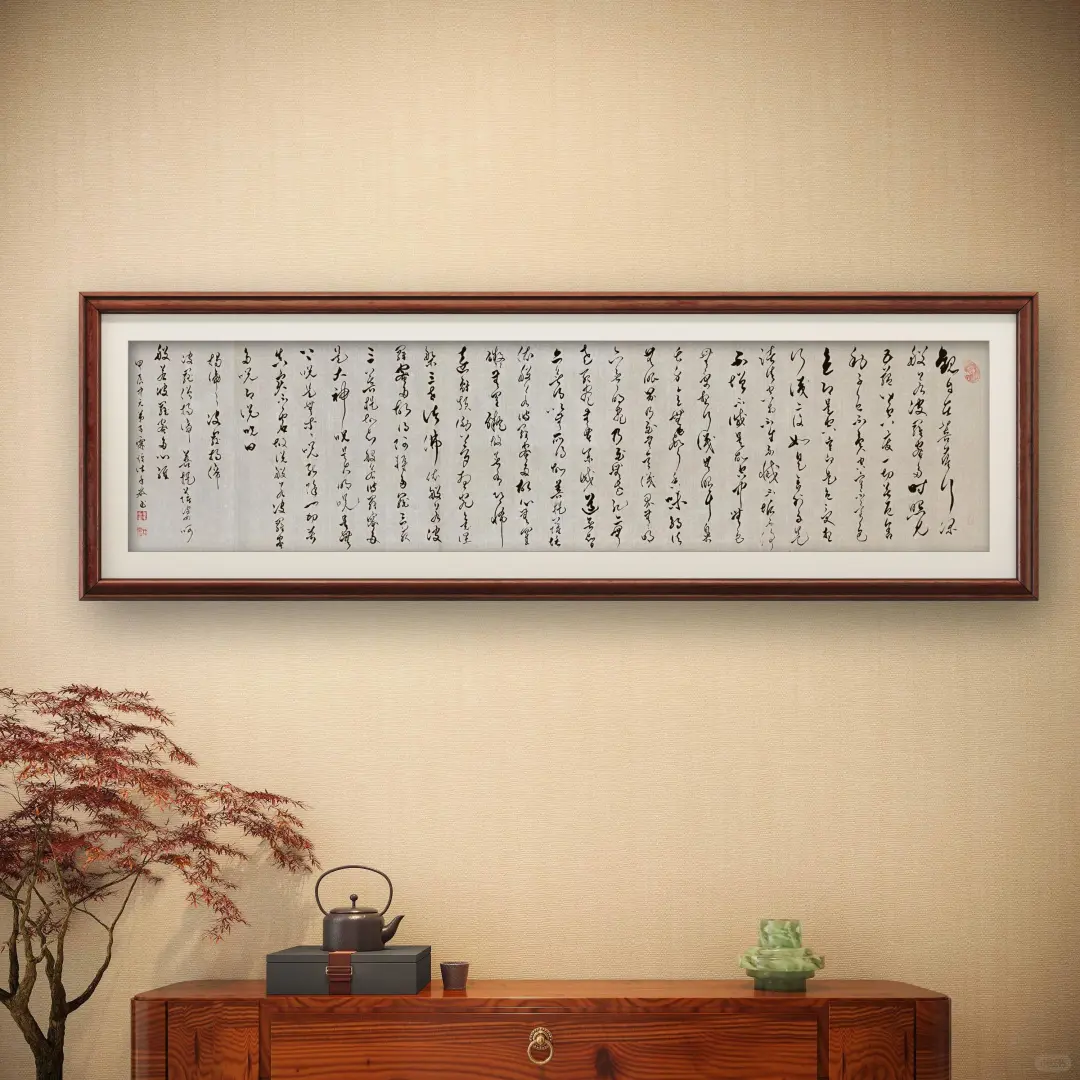 觀自在菩薩行深
般若波羅蜜多時照見
五蘊皆空度一切苦厄舍
利子色不異空空不異色
色即是空空即是色受想
行識亦復如是舍利子是
諸法空相不生不滅不垢不淨
不增不減是故空中無色
無受想行識無眼耳鼻舌
身意無色聲香味觸法
無眼界乃至無意識界無無明
亦無無明盡乃至無老死亦無
老死盡無苦集滅道無智
亦無得以無所得故菩提薩埵
依般若波羅蜜多故心無罣
礙無罣礙故無有恐怖
遠離顛倒夢想究竟涅
槃三世諸佛依般若波
羅蜜多故得阿耨多羅三藐
三菩提故知般若波羅蜜多
是大神咒是大明咒是無
上咒是無等等咒能除一切苦
真實不虛故說般若波羅蜜
多咒即說咒曰
揭諦揭諦波羅揭諦
波羅僧揭諦菩提薩婆訶
般若波羅蜜多心經
甲辰 弟子